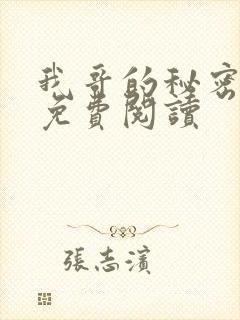 我哥的秘密
免費閱讀
張志濱